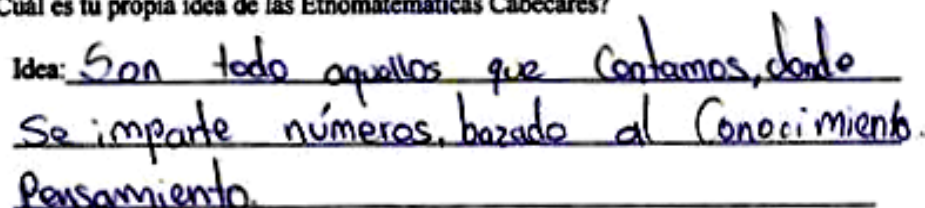 Cuál es tu propia idea de las Etnomatemáticas Cabécares?
Idea: Son todo aquellos que Contamos, donde
Se imparte números, bazado al Conocimiento.
Pensamiento.